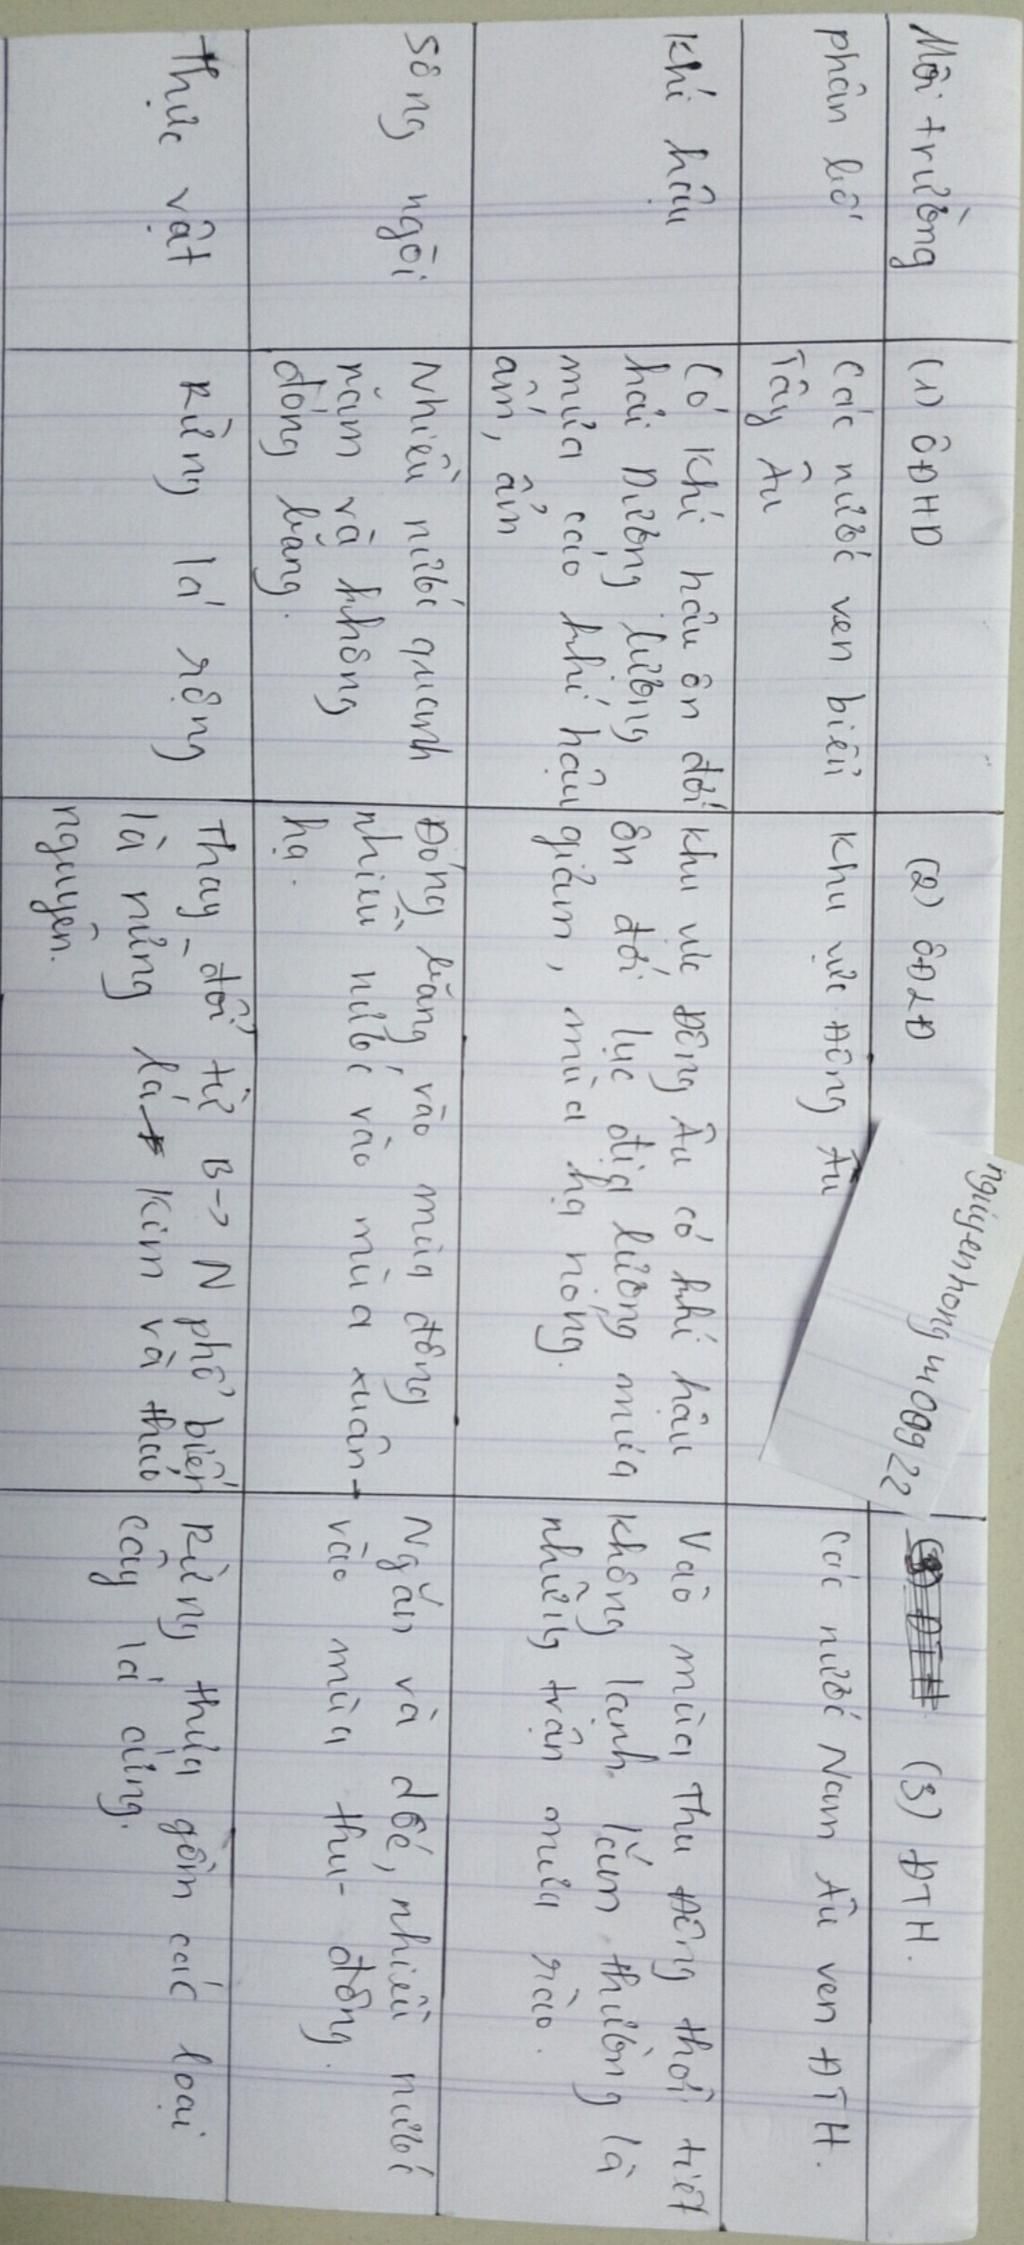 Môi trường
(1) ÔĐHD
(2) ÔĐLĐ
(3) ĐTH.
nguyenhong
phân bố
Các nước ven biển
Tây Âu
Khu vực Đông Âu
Các nước Nam Âu ven ĐTH.
Khí hậu
Có khí hậu ôn đới
hải Dương lượng
mưa cao khí hậu
ấm, ẩm
Khu vực Đông Âu có khí hậu
ôn đới lục địa lượng mưa
giảm, mùa hạ nóng.
Vào mùa Thu Đông thời tiết
không lạnh lắm, thường là
những trận mưa rào.
Sông ngòi
Nhiều nước quanh
năm và không
đóng băng.
Đóng băng vào mùa đông
nhiều nước vào mùa xuân-
hạ.
Ngắn và dốc, nhiều nước
vào mùa thu- đông.
Thực vật
Rừng lá rộng
Thay đổi từ B→ N phổ biến
là rừng lá kim và thảo
nguyên.
Rừng thưa gồm các loại
cây lá cứng.